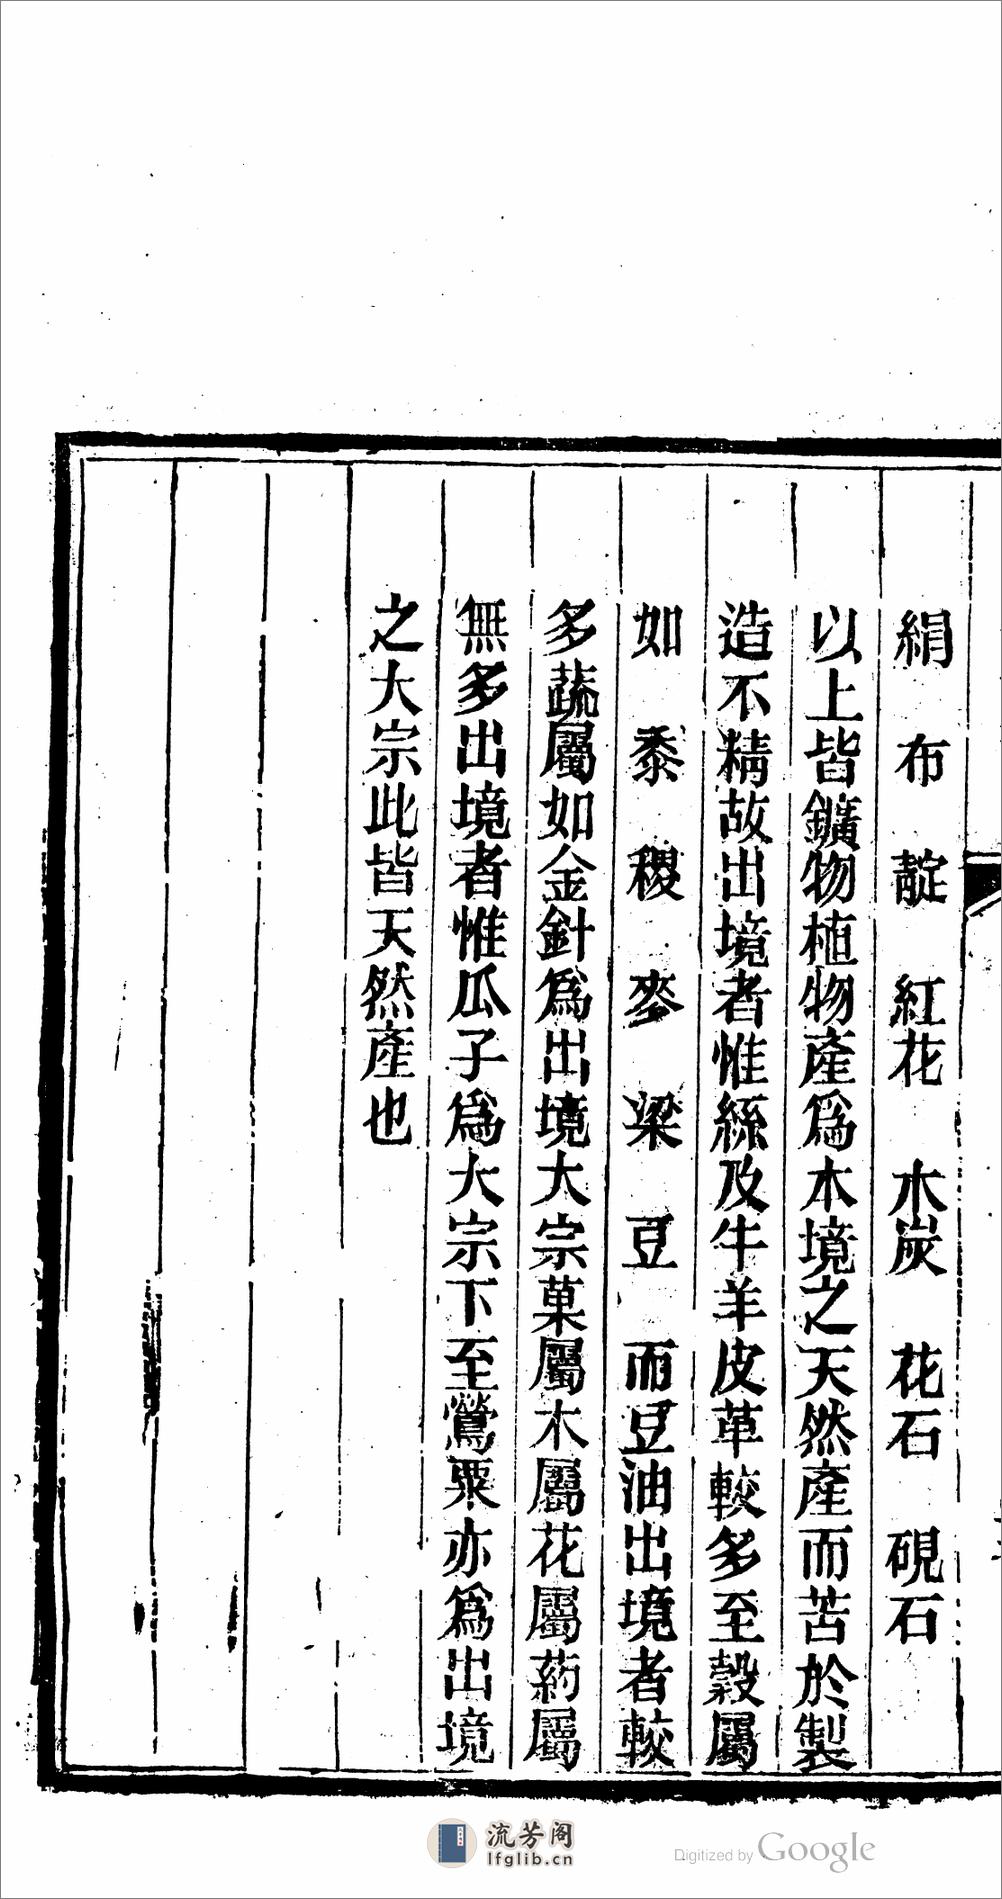 絹　布　靛　紅花　木炭　花石　硯石
以上皆鑛物植物產爲本境之天然產而苦於製
造不精故出境者惟絲及牛羊皮革較多至穀屬
如　黍　稷　麥　梁　豆　而豆油出境者較
多蔬屬如金針爲出境大宗菓屬木屬花屬葯屬
無多出境者惟瓜子爲大宗下至鶯粟亦爲出境
之大宗此皆天然產也
流芳阁
lfglib.cn
Digitized by Google